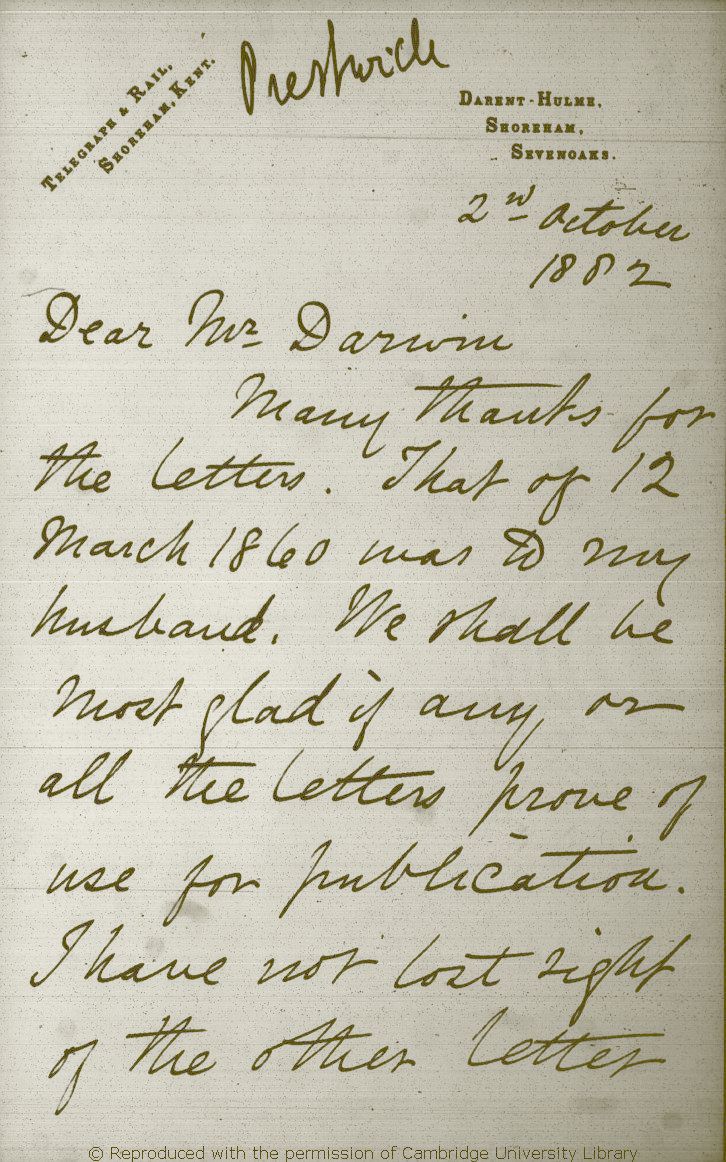 Prestwich
TELEGRAPH & RAIL,
SHOREHAM, KENT.
DARENT-HULME,
SHOREHAM,
SEVENOAKS.
2nd October
1882
Dear Mr Darwin
Many thanks for
the letters. That of 12
March 1860 was to my
husband. We shall be
most glad if any or
all the letters prove of
use for publication.
I have not lost sight
of the other letter
© Reproduced with the permission of Cambridge University Library